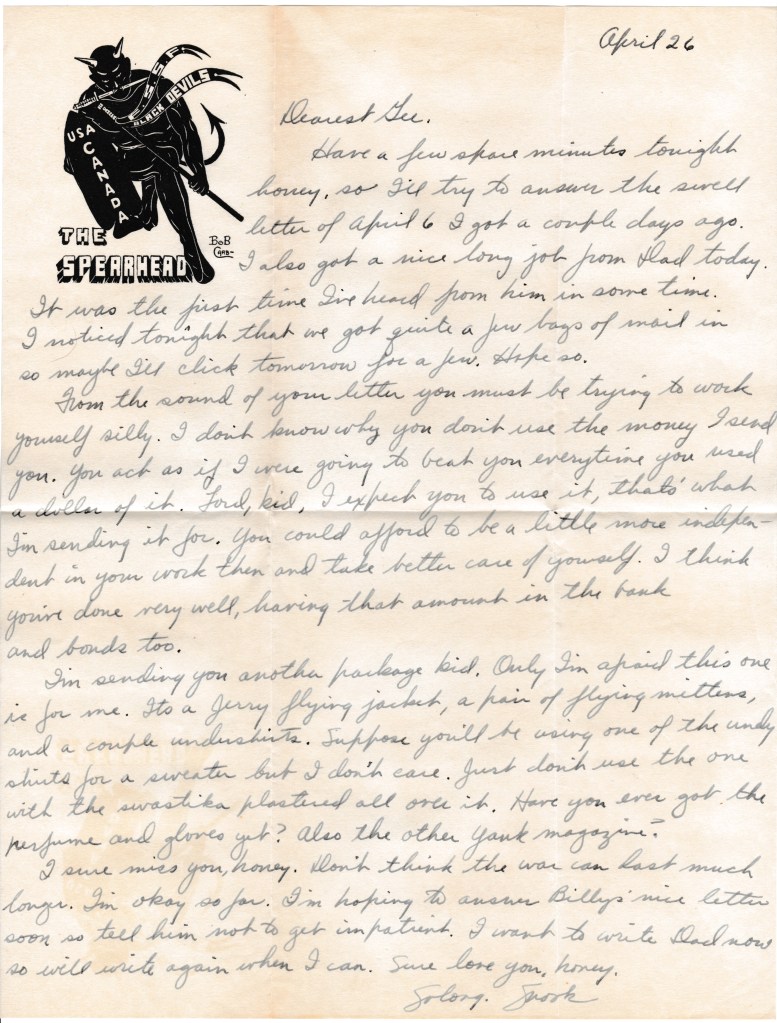 April 26
F.S.S.F.
BLACK DEVILS
USA
CANADA
THE
SPEARHEAD
BOB
Dearest Gee.
Have a few spare minutes tonight
honey, so I'll try to answer the swell
letter of April 6 I got a couple days ago.
I also got a nice long job from Dad today.
It was the first time I've heard from him in some time.
I noticed tonight that we got quite a few bags of mail in
so maybe I'll click tomorrow for a few. Hope so.
From the sound of your letter you must be trying to work
yourself silly. I don't know why you don't use the money I send
you. You act as if I were going to beat you everytime you used
a dollar of it. Lord, kid, I expect you to use it, that's what
I'm sending it for. You could afford to be a little more indepen-
dent in your work then and take better care of yourself. I think
you've done very well, having that amount in the bank
and bonds too.
I'm sending you another package kid. Only I'm afraid this one
is for me. Its a Jerry flying jacket, a pair of flying mittens,
and a couple undershirts. Suppose you'll be using one of the undy
shirts for a sweater but I don't care. Just don't use the one
with the swastika plastered all over it. Have you ever got the
perfume and gloves yet? Also the other Yank magazine?
I sure miss you, honey. Don't think the war can last much
longer. I'm okay so far. I'm hoping to answer Billy's nice letter
soon so tell him not to get impatient. I want to write Dad now
so will write again when I can. Sure love you, honey.
Solong. Snook